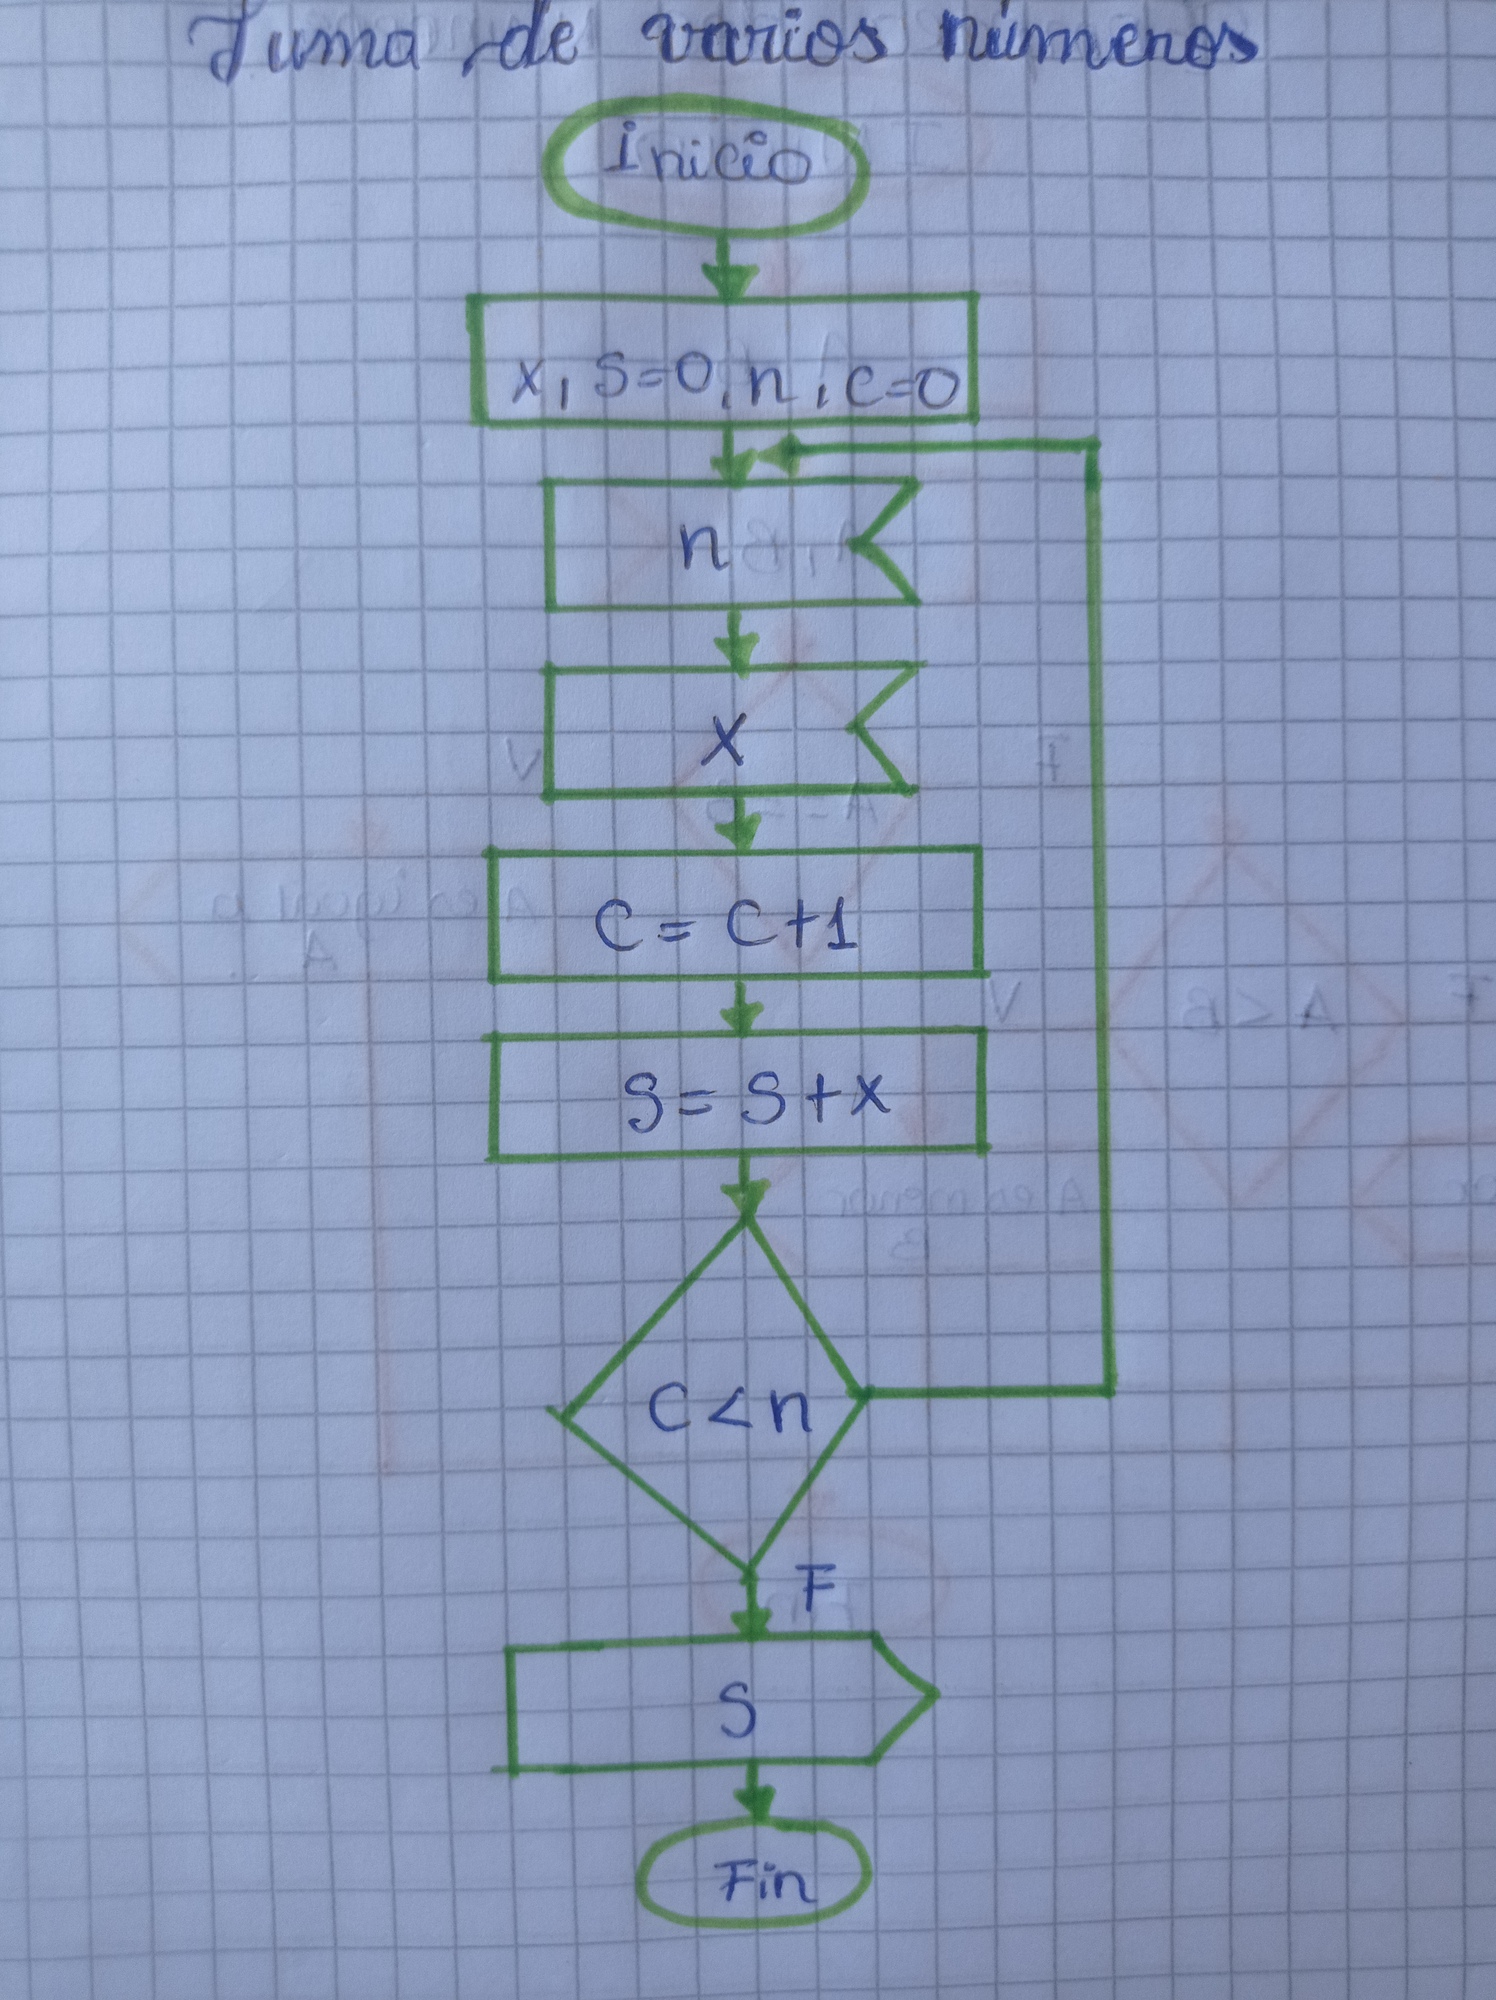 Suma de varios números
Inicio
x, S=0, n, c=0
n
x
C = C+1
S = S+x
C < n
F
S
Fin